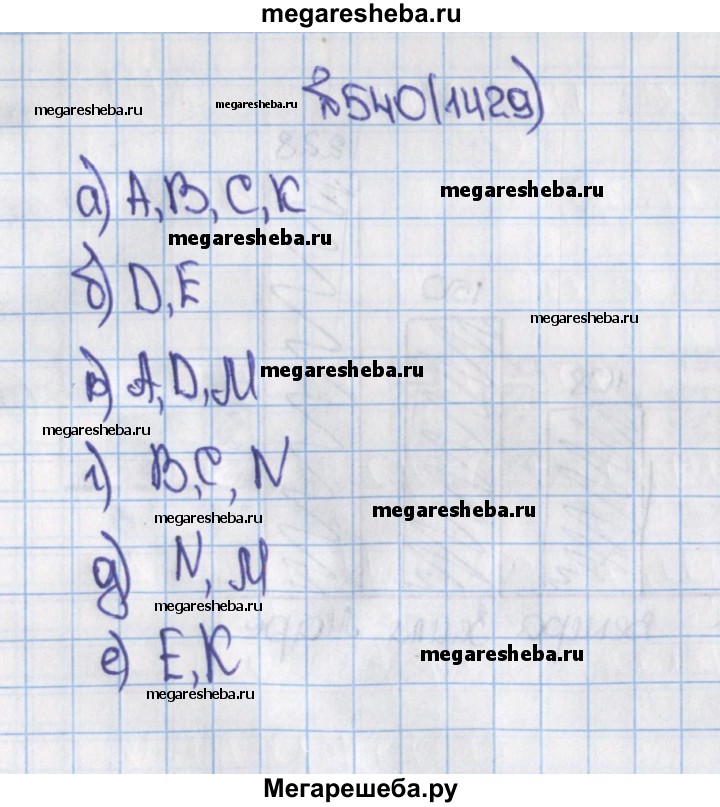 megaresheba.ru
№540(1429)
megaresheba.ru megaresheba.ru
megaresheba.ru
а) A, B, C, K
megaresheba.ru
б) D, E
megaresheba.ru
в) A, D, M megaresheba.ru
megaresheba.ru
г) B, C, N
megaresheba.ru megaresheba.ru
д) N, M
megaresheba.ru
е) E, K megaresheba.ru
megaresheba.ru
Мегарешеба.ру